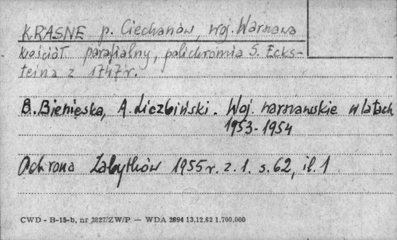 KRASNE p. Ciechanów, woj. Warszawa
kościół parafialny, polichromia S. Ecks-
teina z 1747 r.
B. Bieniecka, A. Liczbiński. Woj. warszawskie w latach
1953-1954
Ochrona Zabytków 1955 r. z. 1. s. 62, il. 1
CWD - B-15-b, nr 3827/ZW/P — WDA 2094 13.12.62 1.700.000